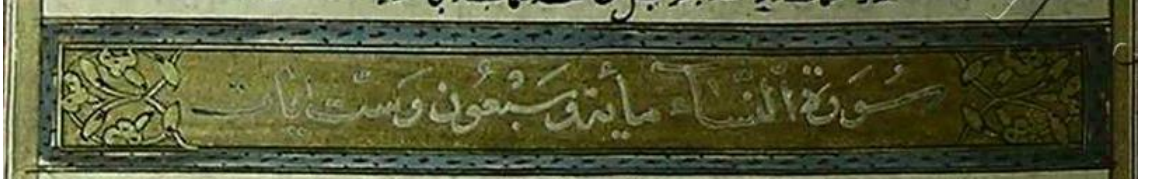 سُورَة النِّسَاء مأية وسَبْعُون وسِتّ ايات